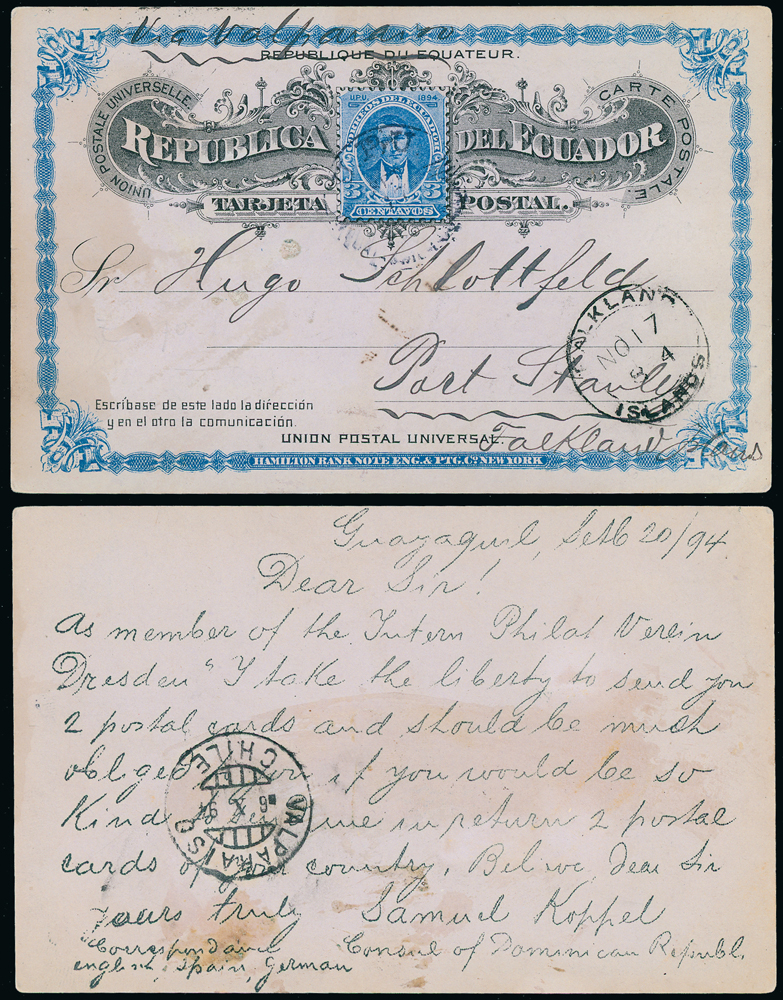 Via Valparaiso
REPUBLIQUE DU EQUATEUR.
UNION POSTALE UNIVERSELLE.
CARTE POSTALE.
U.P.U. 1894
CORREOS DEL ECUADOR
REPUBLICA DEL ECUADOR
3 3
CENTAVOS
TARJETA POSTAL.
Sr Hugo Schlottfeld
FALKLAND
NO 17
94
ISLANDS
Port Stanley
Falkland
Escríbase de este lado la dirección
y en el otro la comunicación.
UNION POSTAL UNIVERSAL.
HAMILTON BANK NOTE ENG. & PTG. Co. NEW YORK
Guayaquil, Setb 20/94.
Dear Sir!
As member of the Intern Philat Verein
Dresden" I take the liberty to send you
2 postal cards and should be much
obliged you if you would be so
Kind me in return 2 postal
cards of your country. Believe, dear Sir
yours truly Samuel Koppel
Consul of Dominican Republ.
Correspondance
english, Spain, German
CHILE
6 X 94
VALPARAISO